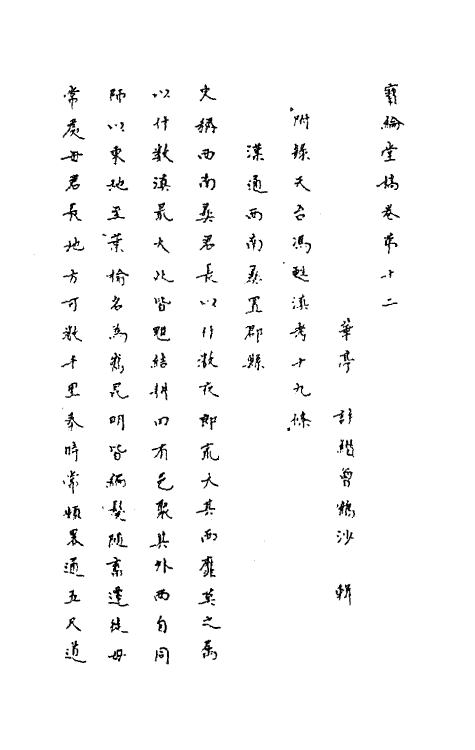 寶綸堂稿卷第十二
華亭 許纘曾鶴沙 輯
附錄天台馮甦滇考十九條
漢通西南彝置郡縣
史稱西南彝君長以什數夜郎㝡大其西靡莫之屬
以什數滇最大此皆魋結耕田有邑聚其外西自同
師以東北至葉榆名為嶲昆明皆編髮隨畜遷徙毋
常處毋君長地方可數千里秦時常頞畧通五尺道